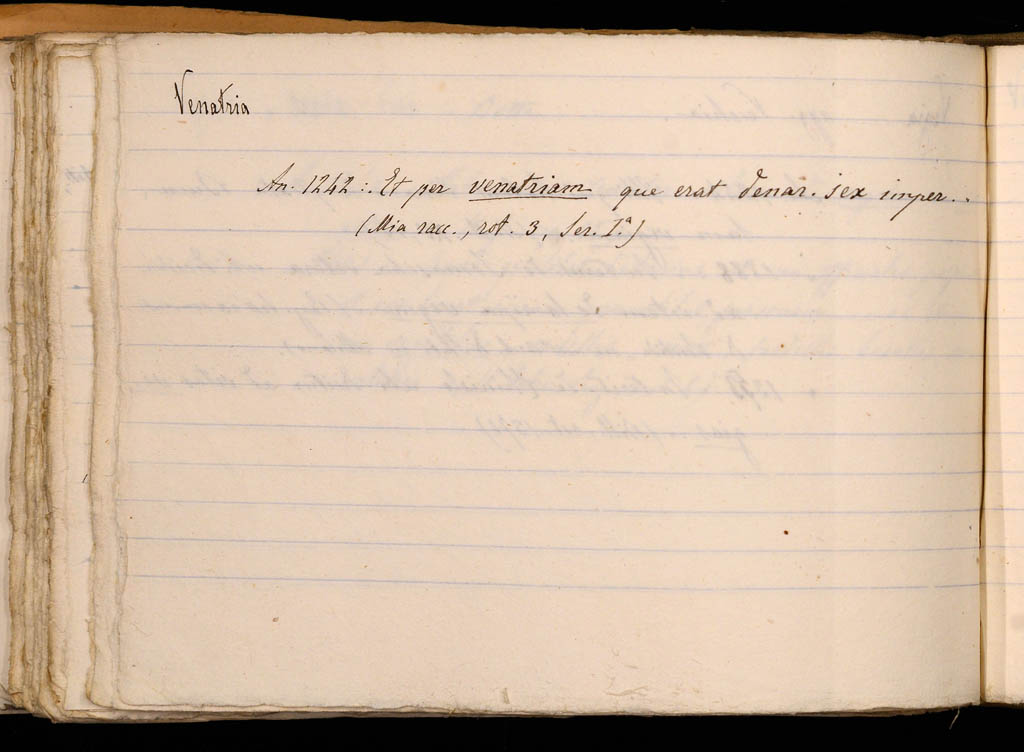 Venatria
An. 1242: Et per venatriam que erat denar. sex imper..
(Mia racc., rot. 3, Ser. I.ª)